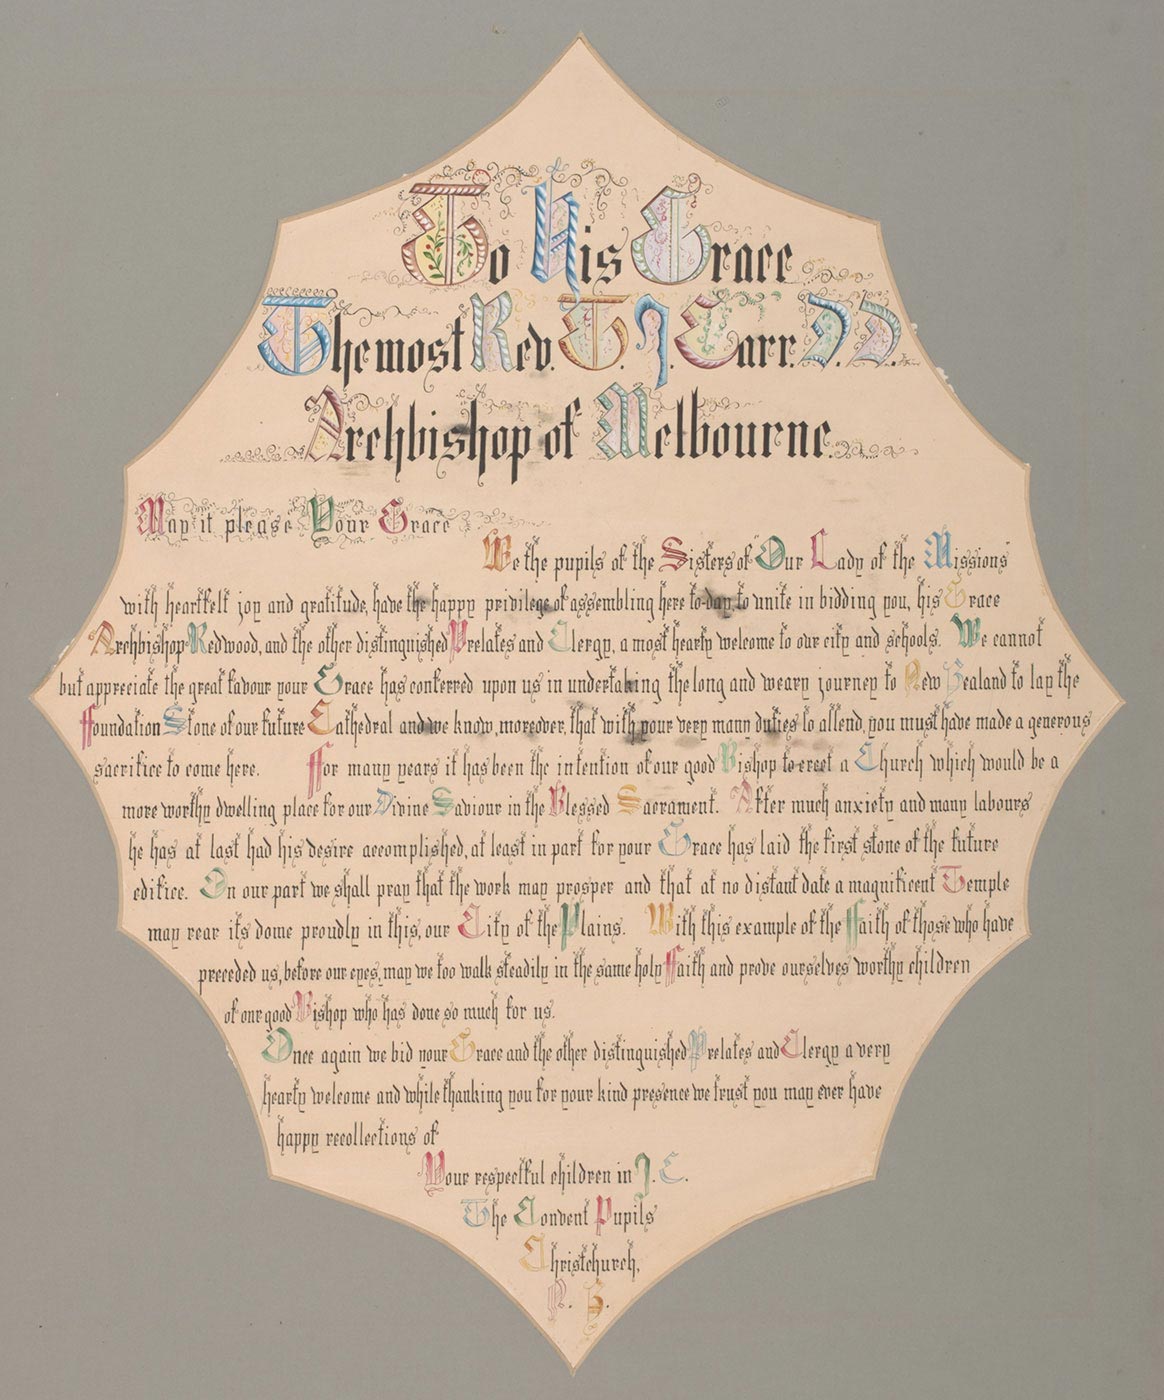 To His Grace
The most Rev. T. J. Carr. D. D.
Archbishop of Melbourne.
May it please Your Grace
We the pupils of the Sisters of "Our Lady of the Missions"
with heartfelt joy and gratitude, have the happy privilege of assembling here to-day, to unite in bidding you, his Grace
Archbishop Redwood, and the other distinguished Prelates and Clergy, a most hearty welcome to our city and schools. We cannot
but appreciate the great favour your Grace has conferred upon us in undertaking the long and weary journey to New Zealand to lay the
Foundation Stone of our future Cathedral and we know, moreover, that with your very many duties to attend, you must have made a generous
sacrifice to come here. For many years it has been the intention of our good Bishop to erect a Church which would be a
more worthy dwelling place for our Divine Saviour in the Blessed Sacrament. After much anxiety and many labours
he has at last had his desire accomplished, at least in part for your Grace has laid the first stone of the future
edifice. On our part we shall pray that the work may prosper and that at no distant date a magnificent Temple
may rear its dome proudly in this, our City of the Plains. With this example of the Faith of those who have
preceded us, before our eyes, may we too walk steadily in the same holy Faith and prove ourselves worthy children
of our good Bishop who has done so much for us.
Once again we bid your Grace and the other distinguished Prelates and Clergy a very
hearty welcome and while thanking you for your kind presence we trust you may ever have
happy recollections of
Your respectful children in J. C.
The Convent Pupils
Christchurch,
N. Z.